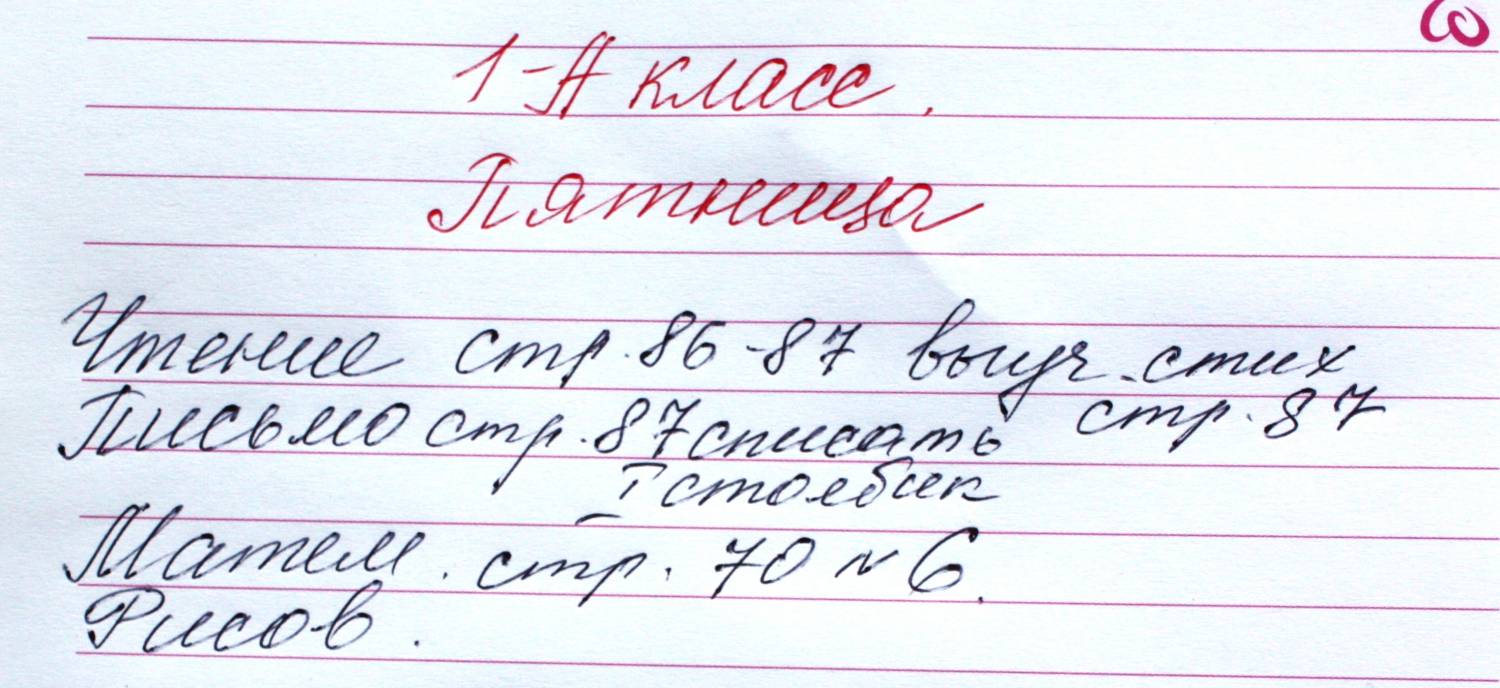 1-А класс.
Пятница
Чтение стр. 86-87 выуч. стих
стр. 87
Письмо стр. 87 списать
I столбик
Матем. стр. 70 № 6.
Рисов.